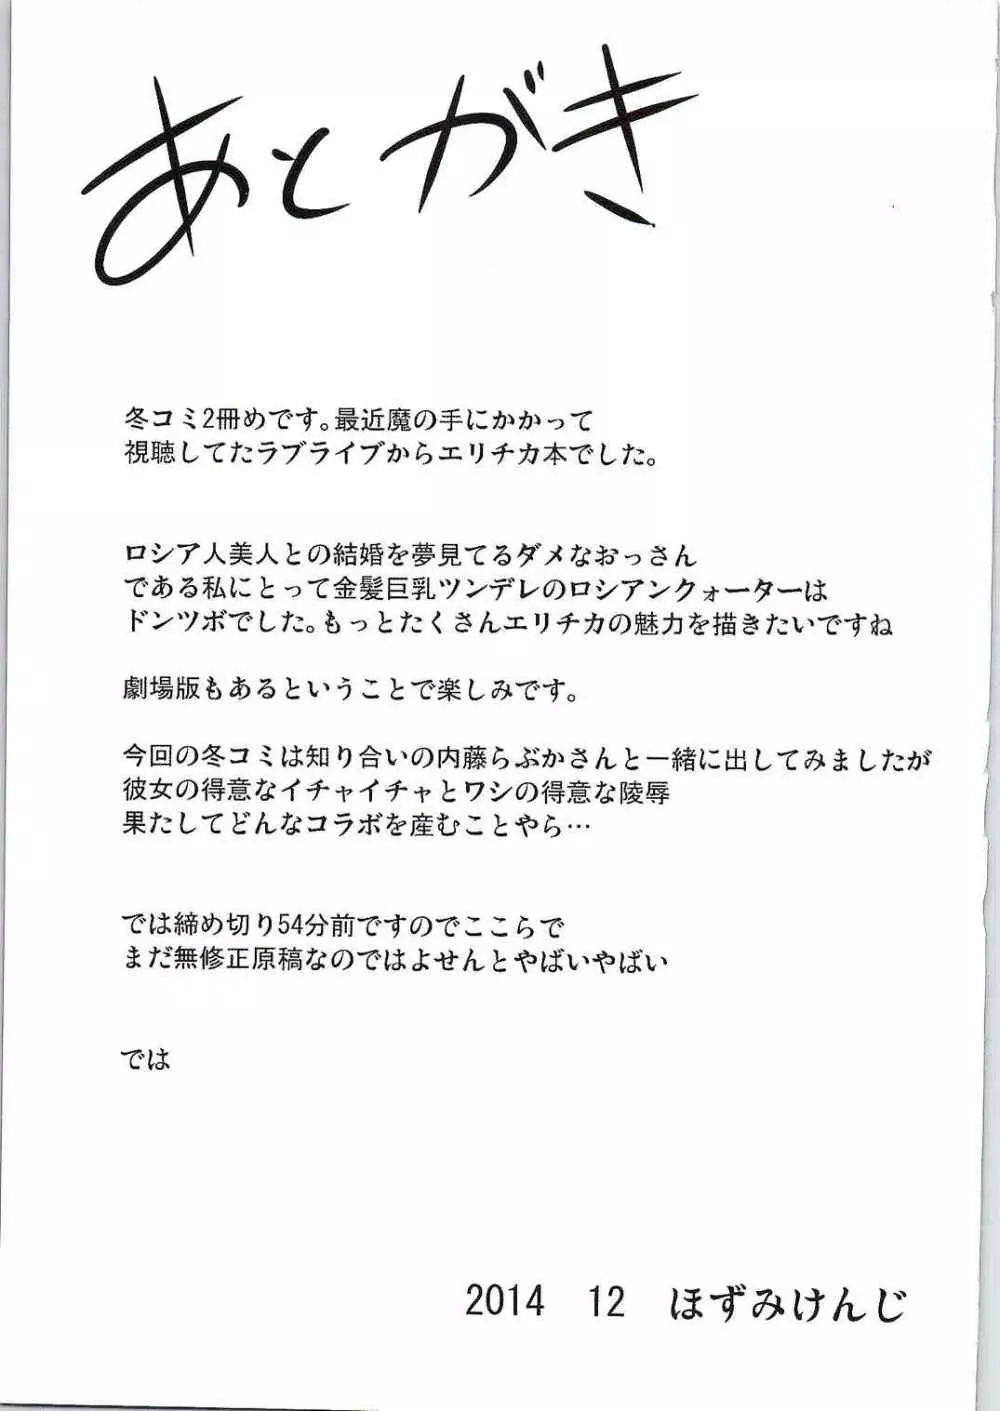 あとがき
冬コミ2冊めです。最近魔の手にかかって
視聴してたラブライブからエリチカ本でした。
ロシア人美人との結婚を夢見てるダメなおっさん
である私にとって金髪巨乳ツンデレのロシアンクォーターは
ドンツボでした。もっとたくさんエリチカの魅力を描きたいですね
劇場版もあるということで楽しみです。
今回の冬コミは知り合いの内藤らぶかさんと一緒に出してみましたが
彼女の得意なイチャイチャとワシの得意な陵辱
果たしてどんなコラボを産むことやら…
では締め切り54分前ですのでここらで
まだ無修正原稿なのではよせんとやばいやばい
では
2014 12 ほずみけんじ